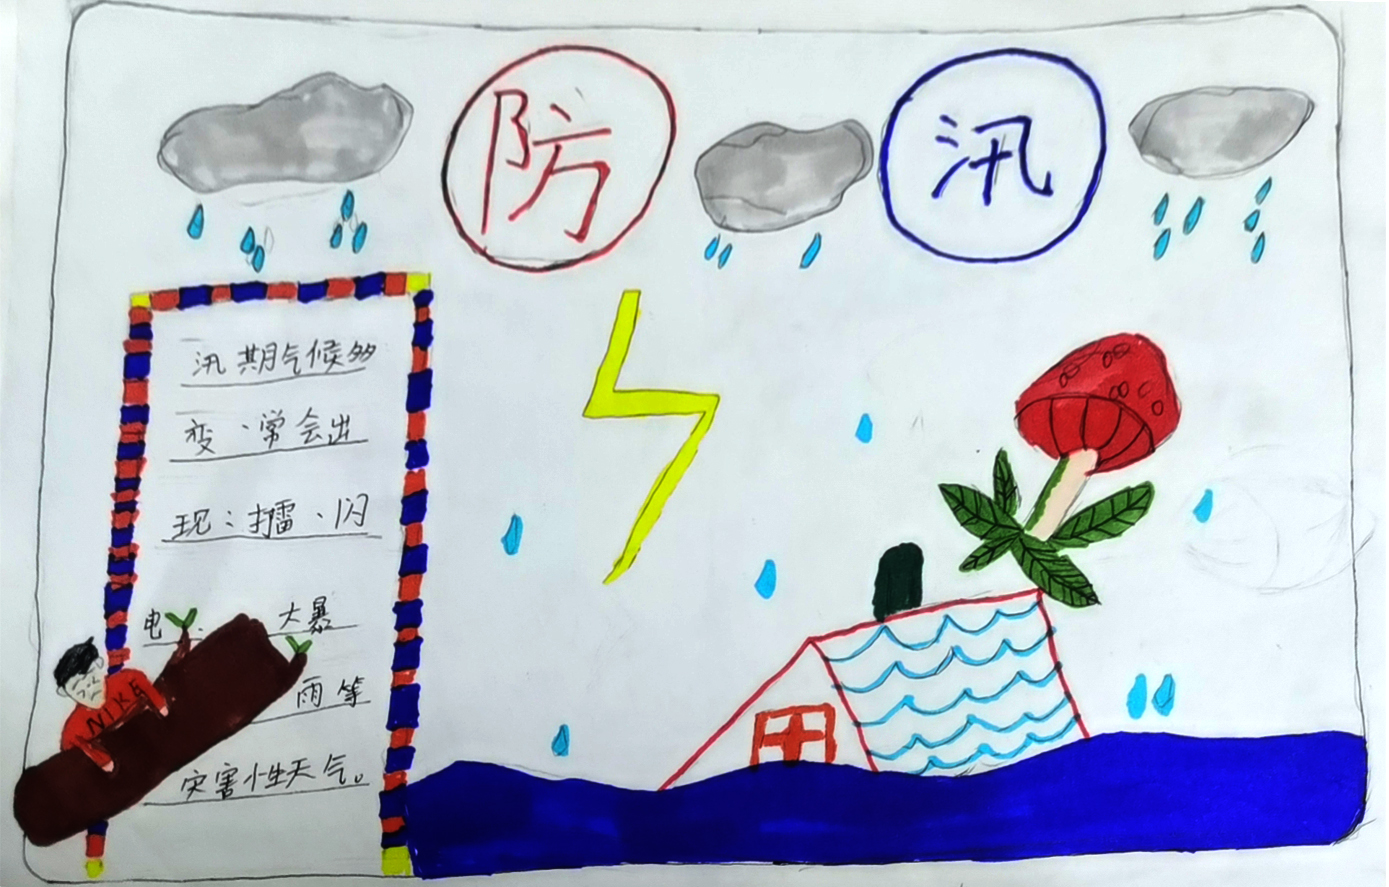 防 汛
汛期气候多
变、常会出
现：打雷、闪
电、大暴
雨等
灾害性天气。
NIKE